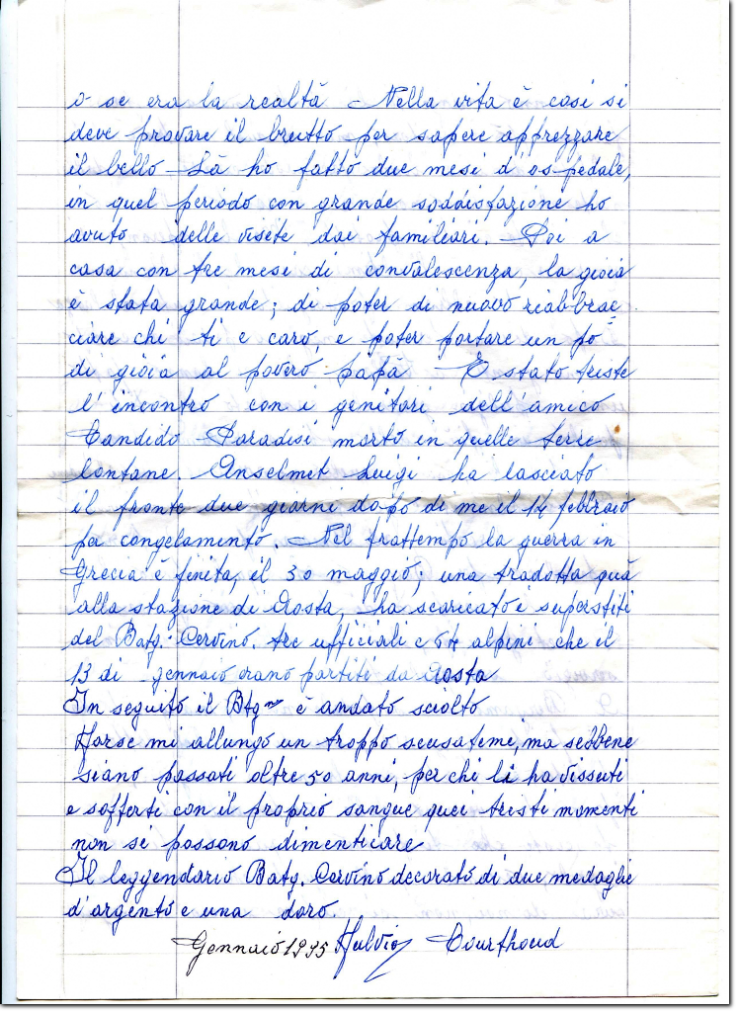 o se era la realtà Nella vita è cosi si
deve provare il brutto per sapere apprezzare
il bello Là ho fatto due mesi d'ospedale,
in quel periodo con grande soddisfazione ho
avuto delle visete dai familiari. Poi a
casa con tre mesi di convalescenza, la gioia
è stata grande; di poter di nuovo riabbrac
ciare chi ti e caro, e poter portare un pò
di gioia al povero papà È stato triste
l'incontro con i genitori dell'amico
Candido Paradisi morto in quelle terre
lontane. Anselmet Luigi ha lasciato
il fronte due giorni dopo di me il 14 febbraio
per congelamento. Nel frattempo la guerra in
Grecia è finita, il 30 maggio; una tradotta quà
alla stazione di Aosta, ha scaricato i superstiti
del Batg. Cervino. tre ufficiali e 64 alpini che il
13 di gennaio erano partiti da Aosta
In seguito il Btg è andato sciolto
Forse mi allungo un troppo scusateme, ma sebbene
siano passati oltre 50 anni, per chi li ha vissuti
e sofferti con il proprio sangue quei tristi momenti
non si possono dimenticare
Il leggendario Batg. Cervino decorato di due medaglie
d'argento e una doro.
Gennaio 1995 Fulvio Courthoud